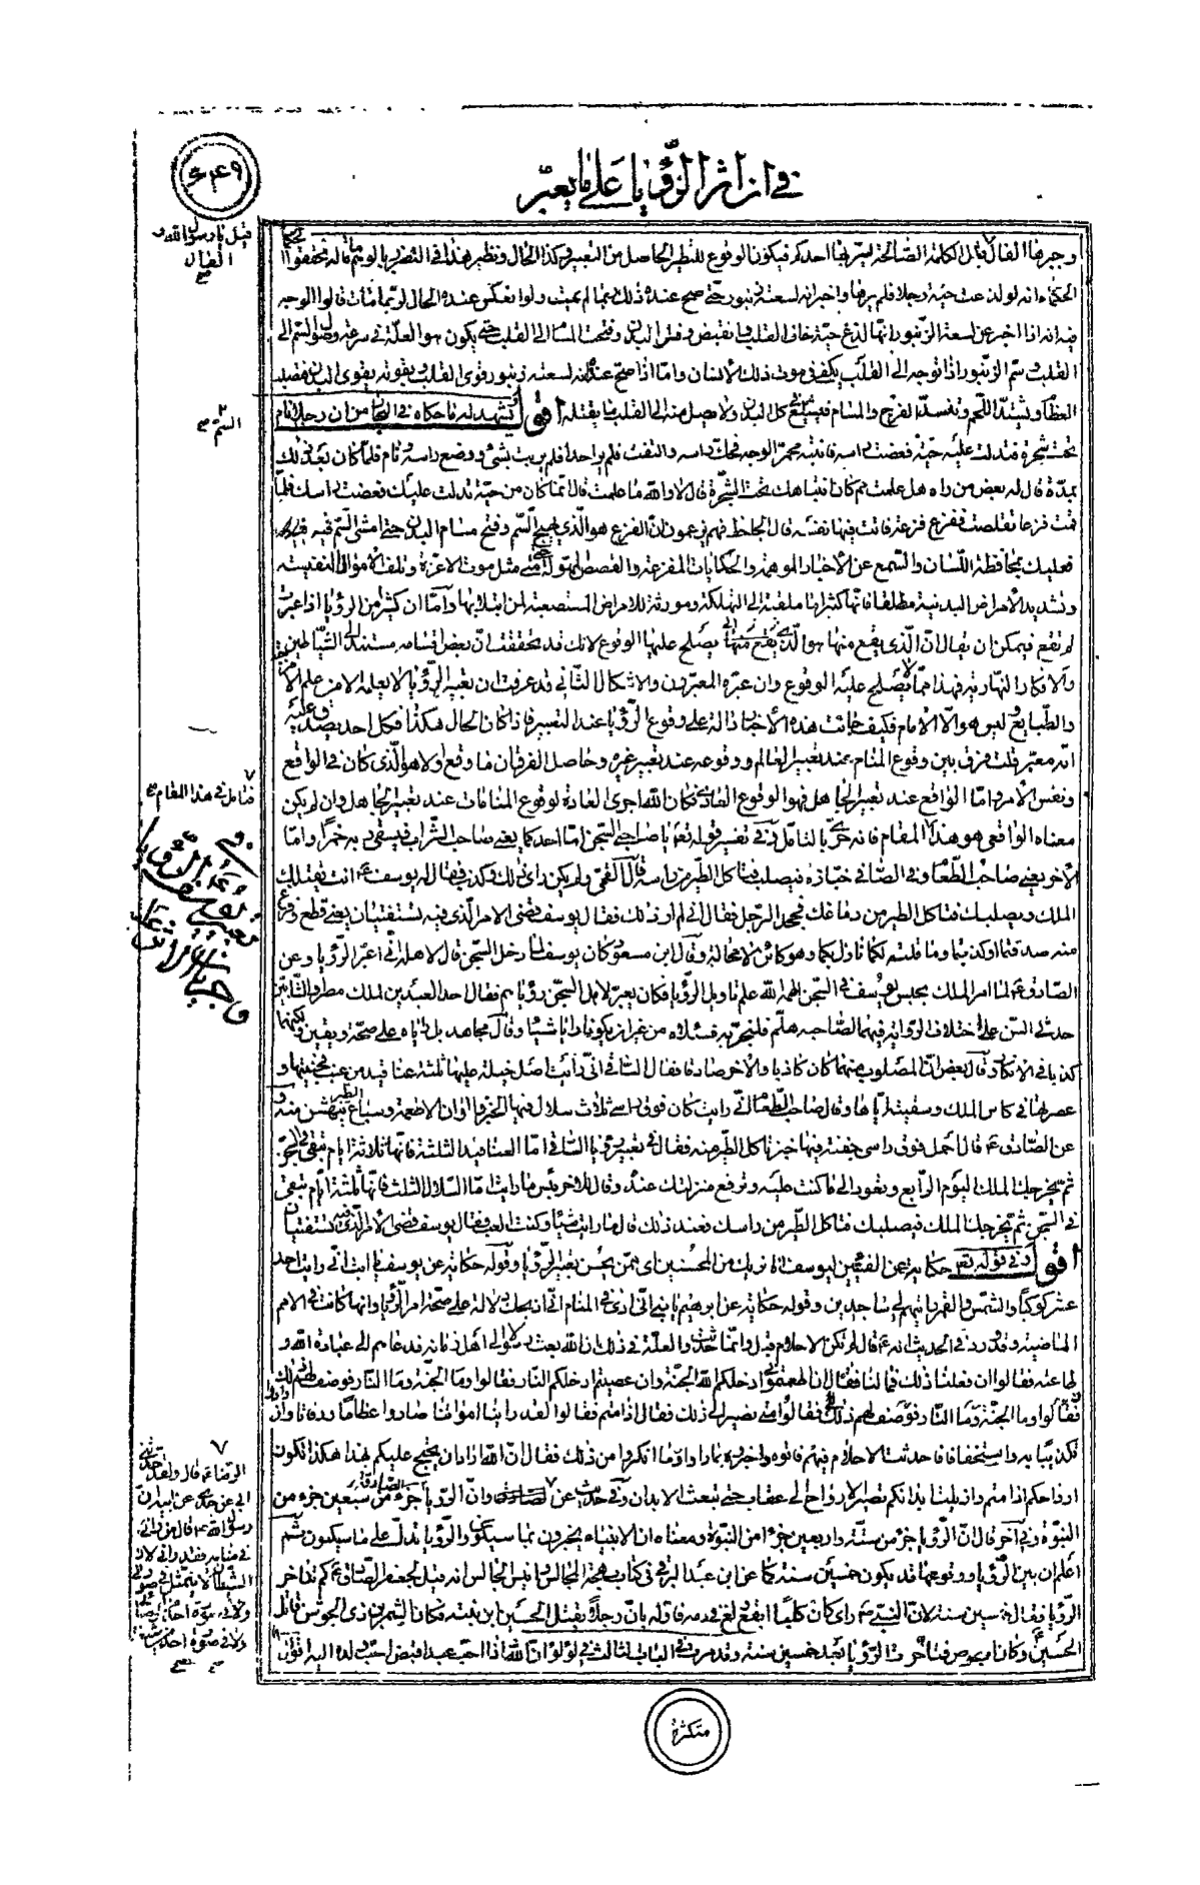 في ان اثر الرؤيا على ما يعبر
٦٤٩
وخيرها الفال قال الكلمة الصالحة يسر بها احدكم فيكون الوقوع للتطير الحاصل من التعبير وكذا الحال ونظير هذا في التضرر بالوهم ما قاله
الحكماء انه لو لدغت حية رجلا فلم يرها واخبر انه لسعته زنبور حتى صح عنده ذلك ربما لم يمت ولو انعكس عنده الحال لربما مات قالوا الوجه
فيه انه اذا اخبر عن لسعة الزنبور انها لدغ حية خاف القلب وانقبض وفتر البدن وفتحت المسام الى القلب حتى يكون هو العلة في سرعة وصول السم الى
القلب وسم الزنبور اذا توجه الى القلب يكفي في موت ذلك الانسان واما اذا صح عنده انه لسعته زنبور قوى القلب وبقوته يقوى البدن فيصلب
العظام ويشتد اللحم وتفسد الفرج والمسام كل البدن ولا يصل منه الى القلب ما يقتله اقول يشهد له ما حكاه في من ان رجلا نام
تحت شجرة فتدلت عليه حية فعضت راسه فانتبه محمر الوجه فحك راسه والتفت فلم ير احدا فلم يرتب بشيء ووضع راسه ونام فلما كان بعد ذلك
بمدة قال له بعض من راه هل علمت مم كان انتباهك تحت الشجرة قال لا والله ما علمت قال انما كان من حية تدلت عليك فعضت راسك فلما
قمت فزعا تقلصت ففزع فزعة فاتت فيها نفسه قال الجاحظ فهم يزعمون ان الفزع هو الذي هيج السم وفتح مسام البدن حتى مشى السم فيه
فعليك بمحافظة اللسان والسمع عن الاخبار الموهمة والحكايات المفزعة والقصص المهولة حتى مثل موت الاعزة وتلف الاموال النفيسة
وتشديد الامراض البدنية مطلقا فانها كثيرا ما ملقية الى التهلكة ومورثة للامراض المستصعبة لمن ابتلا بها واما ان كثيرا من الرؤيا اذا عبرت
لم تقع فيمكن ان يقال ان الذي يقع منها هو الذي يصلح عليها الوقوع لانك قد تحققت ان بعض اقسامه مستند الى الشياطين
والافكار النهارية فهذا مما لا يصلح عليه الوقوع وان عبره المعبرون والاشكال الثاني قد عرفت ان تعبير الرؤيا لا يعلمه الا من علم
والطبايع وليس هو الا الامام فكيف جائت هذه الاخبار دالة على وقوع الرؤيا عند التعبير فاذا كان الحال هكذا فكل احد يصدق عليه
انه معبر قلت فرق بين وقوع المنام عند تعبير العالم ووقوعه عند تعبير غيره وحاصل الفرق ان ما وقع اولا هو الذي كان في الواقع
ونفس الامر واما الواقع عند تعبير الجاهل فهو الوقوع العادي فكان الله اجرى العادة لوقوع المنامات عند تعبير الجاهل وان لم يكن
معناه الواقعي هو هذا المقام فانه حري بالتامل في تفسير قوله تعالى يا صاحبي السجن اما احدكما يعني صاحب الشراب فيسقي ربه خمرا واما
الاخر يعني صاحب الطعام وفي الصافي خبازه فيصلب فتاكل الطير من راسه قال القمي ولم يكن راى ذلك وكذب فقال له يوسف ع انت يقتلك
الملك ويصلبك فتاكل الطير من دماغك فجحد الرجل فقال اني لم ار ذلك فقال يوسف قضي الامر الذي فيه تستفتيان يعني قطع وفرغ
منه صدقتما او كذبتما وما قلته لكما تاويلكما وهو كائن لا محالة وقال ابن مسعود كان يوسف لما دخل السجن قال لاهله اني اعبر الرؤيا وعن
الصادق ع لما امر الملك بحبس يوسف في السجن الهمه الله علم تاويل الرؤيا فكان يعبر لاهل السجن رؤياهم فقال احد العبدين لملك مصر
حدثي السن على اختلاف الروايتين فيهما لصاحبه هلم فلنجربه فسئلاه من غير ان يكونا رايا شيئا وقال مجاهد بل رايا على صحة ويقين ولكنهما
كذبا في الانكار وقال بعض ان المصلوب منهما كان كاذبا والاخر صادقا فقال الساقي اني رايت اصل حبلة عليها ثلثة عناقيد من عنب فجنيتها و
عصرتها في كاس الملك وسقيته اياها وقال صاحب الطعام اني رايت كان فوق راسي ثلاث سلال فيها الخبز والوان الاطعمة وسباع الطير تنهش منه و
عن الصادق ع قال احمل فوق راسي جفنة فيها خبز تاكل الطير منه فقال في تعبير رؤيا الساقي اما العناقيد الثلثة فانها ثلاثة ايام تبقى في السجن
ثم يخرجك الملك اليوم الرابع وتعود الى ما كنت عليه وترفع منزلتك عنده وقال للاخر بئس ما رايت اما السلال الثلث فانها ثلثة ايام تبقى
في السجن ثم يخرجك الملك فيصلبك فتاكل الطير من راسك فعند ذلك قال ما رايت شيئا وكنت العب فقال يوسف قضي الامر الذي فيه تستفتيان
اقول وفي قوله تعالى حكاية عن الفتيين ليوسف انا نريك من المحسنين اي ممن يحسن تعبير الرؤيا وقوله حكاية عن يوسف يا ابت اني رايت احد
عشر كوكبا والشمس والقمر رايتهم لي ساجدين وقوله حكاية عن ابرهيم يا بني اني ارى في المنام اني اذبحك دلالة على صحة امر الرؤيا وانها كانت في الامم
الماضية وقد ورد في الحديث انه ع قال لم تكن الاحلام قبل وانما حدثت والعلة في ذلك ان الله بعث رسولا الى اهل زمانه فدعاهم الى عبادة الله و
طاعته فقالوا ان فعلنا ذلك فما لنا فقال ان اطعتموني ادخلكم الله الجنة وان عصيتم ادخلكم النار فقالوا وما الجنة وما النار فوصف لهم ذلك
فقالوا وما الجنة وما النار فوصف لهم ذلك فقالوا متى نصير الى ذلك فقال اذا متم فقالوا لقد راينا امواتنا صاروا عظاما ورفاتا وازدادوا
تكذيبا به واستخفافا فاحدثت الاحلام فيهم فاتوه واخبروه بما راوا وما انكروا من ذلك فقال ان الله اراد ان يحتج عليكم بهذا هكذا تكون
ارواحكم اذا متم وان بليت ابدانكم تصير الارواح الى عقاب حتى تبعث الابدان وفي حديث عن الصادق وان الرؤيا جزء من سبعين جزء من
النبوة وفي اخر قال ان الرؤيا جزء من ستة واربعين جزءا من النبوة ومعناه ان الانبياء يخبرون بما سيكون والرؤيا تدل على ما سيكون ثم
اعلم ان بين الرؤيا ووقوعها قد يكون خمسين سنة كما عن ابن عبد البر في كتاب بهجة المجالس وانيس الجالس انه قيل لجعفر الصادق ع كم تتاخر
الرؤيا فقال خمسين سنة لان النبي ص راى كان كلبا ابقع ولغ في دمه فاوله بان رجلا يقتل الحسين ابن بنته فكان الشمر بن ذي الجوشن قاتل
الحسين ع وكان ابرص فتاخرت الرؤيا بعد خمسين سنة وقد مر في الباب الثالث في لؤلؤ ان الله اذا احب عبدا قبض احب ولده اليه
قيل يا رسول الله و
ما الفال
السم
فتامل في هذا المقام
في
وقوع الرؤيا
الرضا ع قال ولقد حدثني
ابي عن جدي عن ابيه ان
رسول الله ص قال من راني
في منامه فقد راني لان
الشيطان لا يتمثل في صورتي
ولا في صورة احد من اوصيائي
ولا في صورة احد من شيعتهم
متكثرة